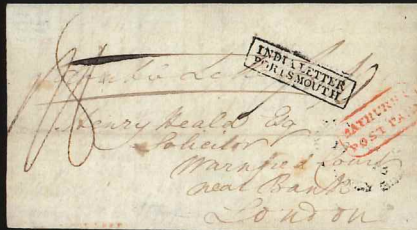 INDIA LETTER
PORTSMOUTH
POST
Henry Heald Esq
Solicitor
Warnford Court
near Bank
London